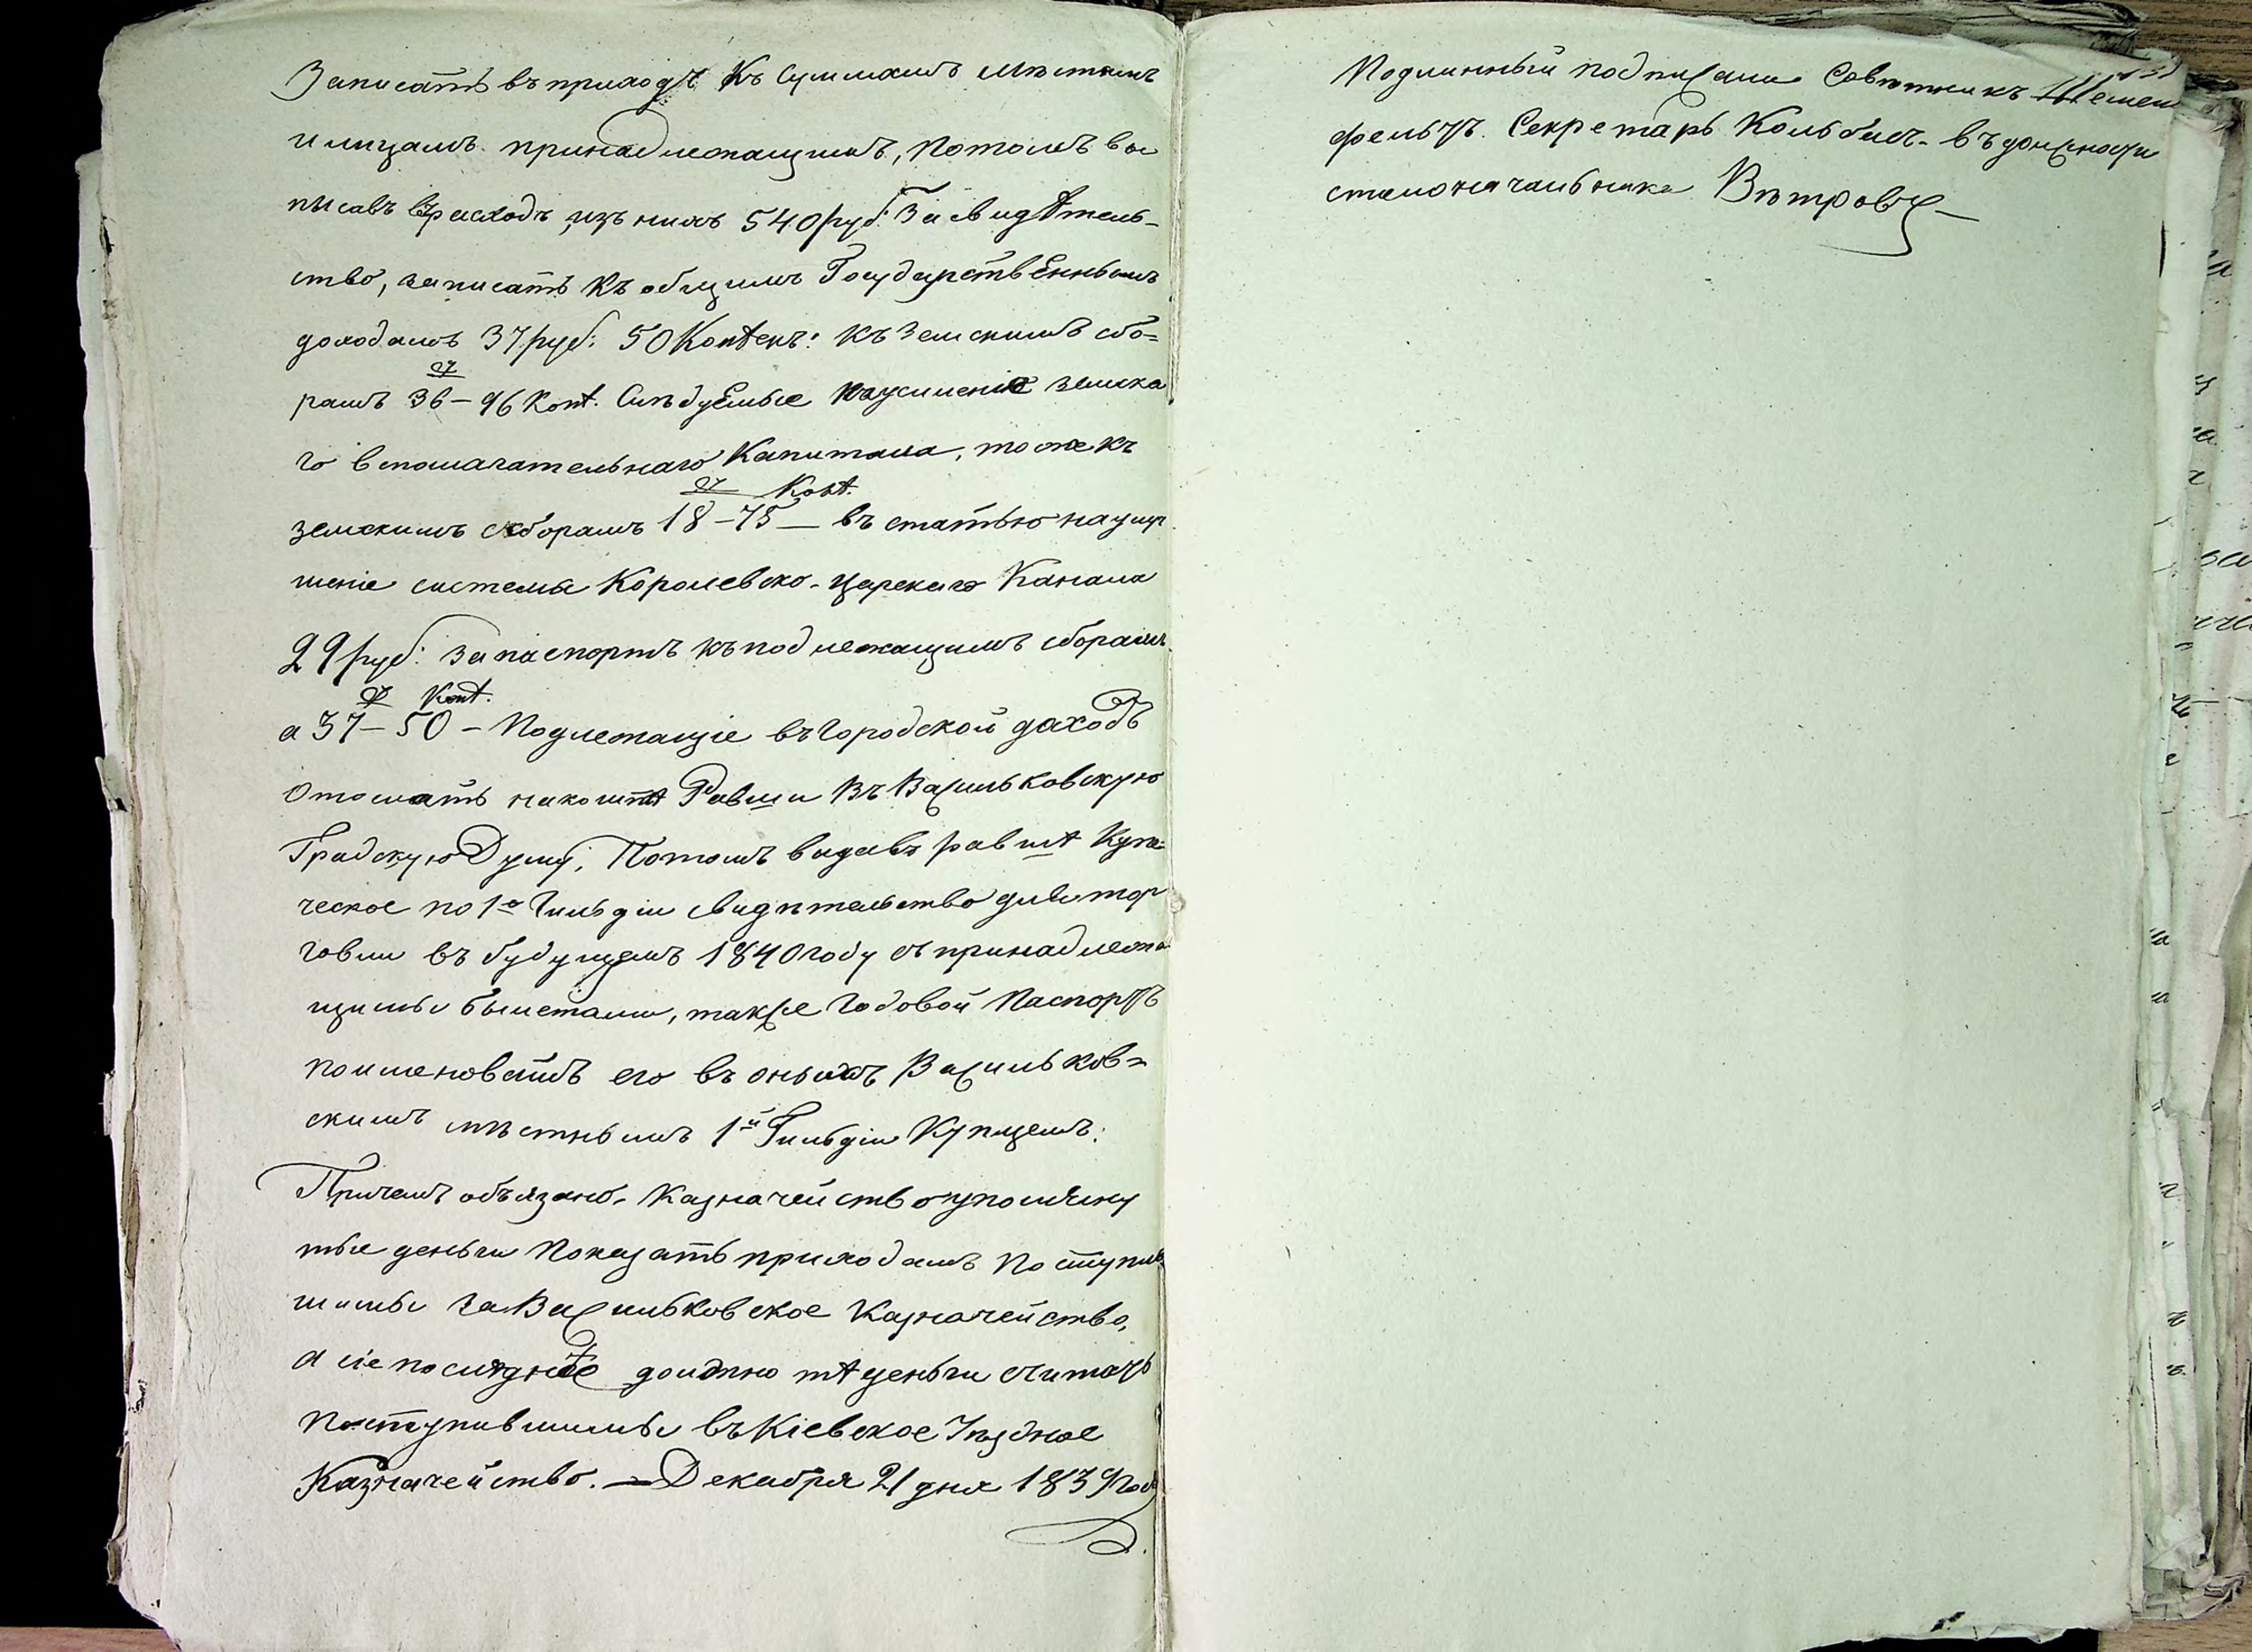 Записать въ приходъ къ суммамъ мѣстамъ
и лицамъ принадлежащимъ, потомъ вы
писавъ въ расходъ, изъ нихъ 540 руб: За свидѣтель-
ство, записать къ общимъ Государственнымъ
доходамъ 37 руб: 50 Копѣекъ: къ Земскимъ сбо=
рамъ 36 – 96 Коп. Слѣдуемые на усиленіе земска
го вспомагательнаго Капитала, тоже къ
Коп.
земскимъ сборамъ 18 – 75 — въ статью на улуч
шеніе системы Королевско-царскаго Канала
29 руб: за паспортъ къ подлежащимъ сборамъ.
Коп.
а 37 – 50 – Подлежащіе въ городской доходъ
отослать на кошть Равши въ Васильковскую
Градскую Думу; Потомъ выдавъ равшѣ Купе=
ческое по 1й Гильдіи свидѣтельство для тор
говли въ будущемъ 1840 году съ принадлежа
щимы билетами, также годовой Паспортъ
поименовать его въ оныхъ Васильков=
скимъ мѣстнымъ 1й Гильдіи Купцемъ:
Причемъ обязано Казначейство упомяну
тые деньги показать приходамъ поступив
шимы за Васильковское Казначейство,
а сіе послѣднее должно тѣ деньги считать
поступившимы въ Кіевское Уѣздное
Казначейство. — Декабря 21 дня 1839 года
Подлинный подписали Совѣтникъ
фельтъ. Секретарь Кольбин. въ должности
столоначальника Вѣтровъ